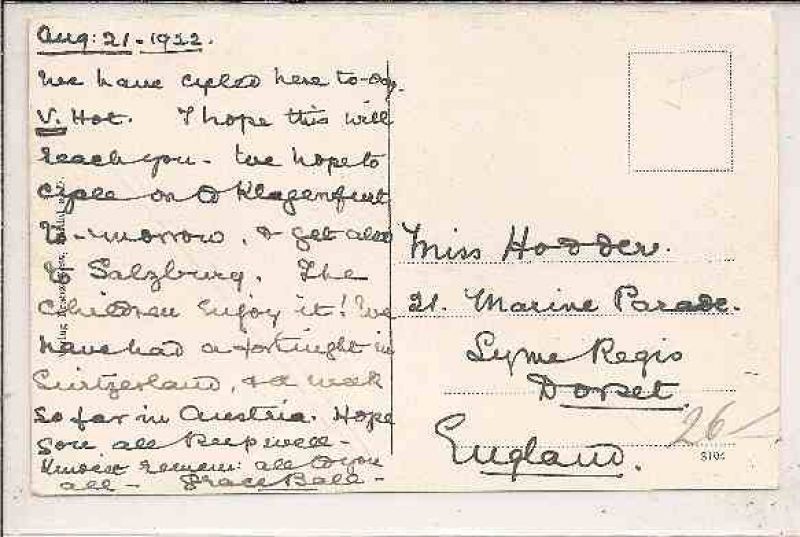 Aug: 21 - 1922.
We have cycled here to-day.
V. Hot. I hope this will
reach you - We hope to
cycle on to Klagenfurt
to-morrow, & get also
to Salzburg. The
children enjoy it! We
have had a fortnight in
Switzerland, & a week
so far in Austria. Hope
you all keep well -
Kindest remem: all to you
all - Grace Ball -
Miss Hodder.
21. Marine Parade.
Lyme Regis
Dorset.
England.
26/-
3104